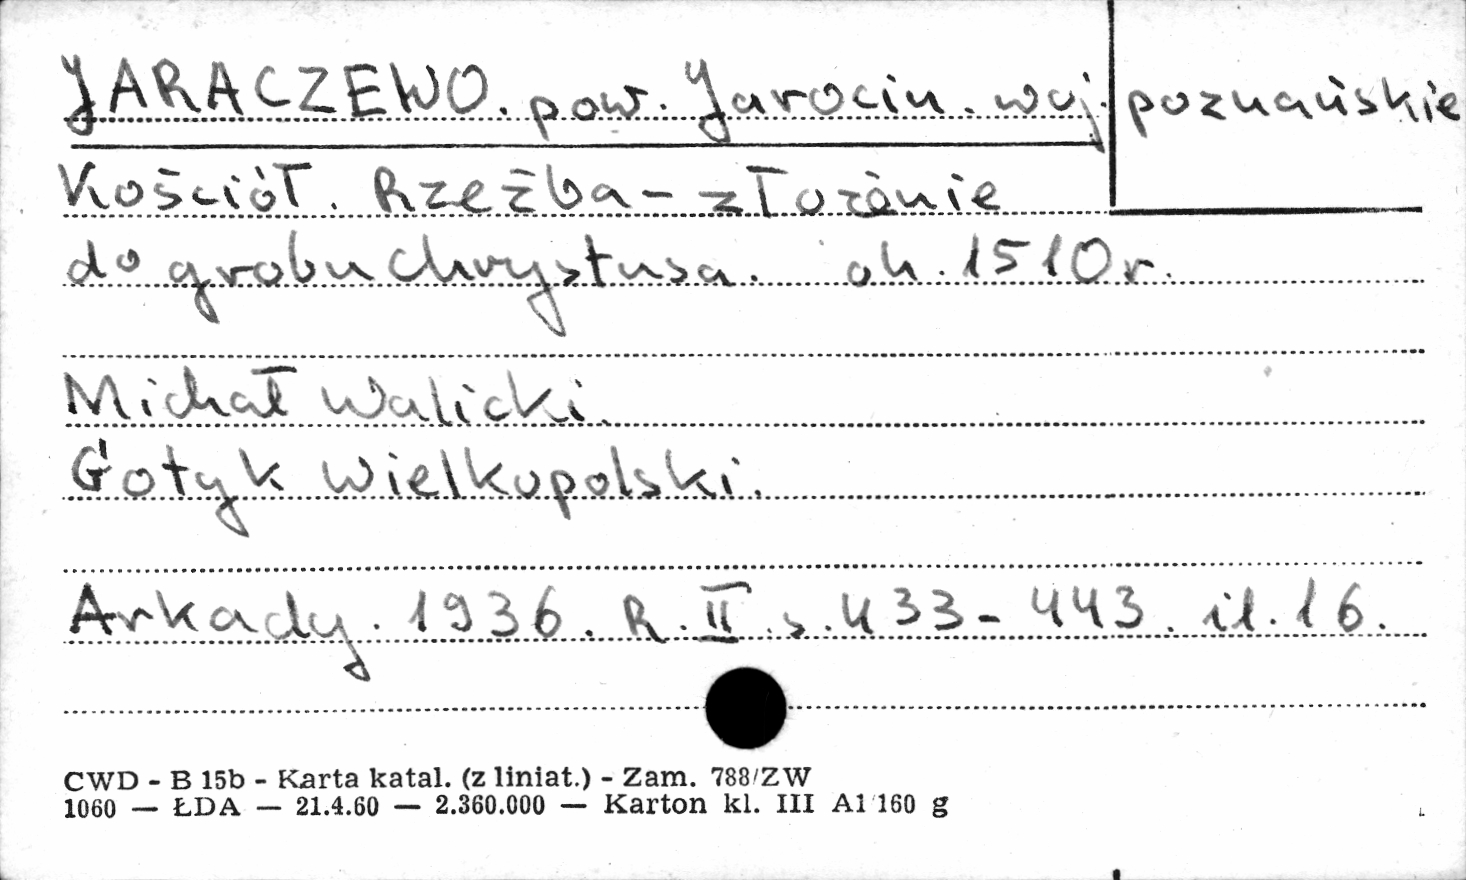 JARACZEWO. pow. Jarocin. woj. poznańskie
Kościół. Rzeźba - złożenie
do grobu Chrystusa. ok. 1510 r.
Michał Walicki.
Gotyk Wielkopolski.
Arkady. 1936. R. II. s. 433-443. il. 16.
CWD - B 15b - Karta katal. (z liniat.) - Zam. 788/ZW
1060 — ŁDA — 21.4.60 — 2.360.000 — Karton kl. III A1 160 g